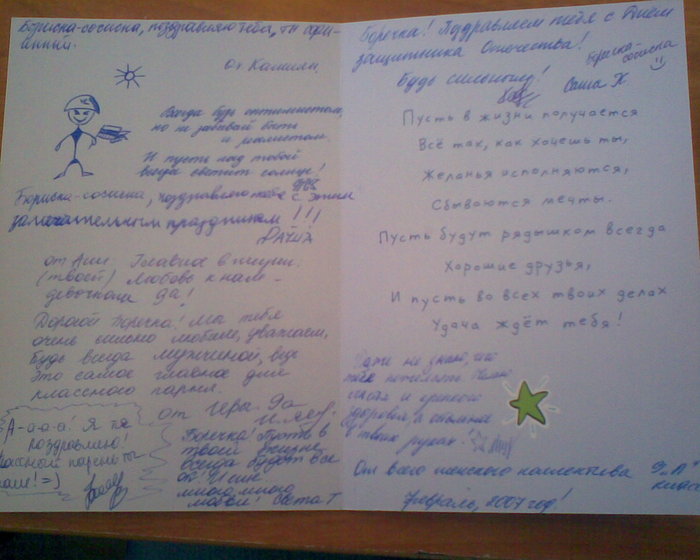 Бориска-сосиска, поздравляю тебя, ты офи-
анный.
От Камилы.
Всегда будь оптимистом,
но не забывай быть
и реалистом.
И пусть над тобой
всегда светит солнце!
Бориска-сосиска, поздравляю тебя с этим
замечательным праздником!!!
ДАША
от Ани: Главное в жизни
(твоей) любовь к нам -
девочкам да!
Дорогой Боречка! Мы тебя
очень сильно любим, уважаем,
Будь всегда мужчиной, ведь
это самое главное для
классного парня.
А-а-а-а! Я тя
поздравляю!
классный парень ты
наш! =)
от Геры.
Боречка! Пусть в
твоей жизни
всегда будет все
ок! И
много много
любви! Света Т
Боречка! Поздравляем тебя с Днём
защитника Отечества!
Бориска-
сосиска
Будь сильным!
Саша Х
Пусть в жизни получается
Всё так, как хочешь ты,
Желанья исполняются,
Сбываются мечты.
Пусть будут рядышком всегда
Хорошие друзья,
И пусть во всех твоих делах
Удача ждёт тебя!
Даже не знаю, что
тебе пожелать.
счастья и крепкого
здоровья, а остальное
в твоих руках.
От всего женского коллектива 9 "А"
класса
Февраль, 2007 год!